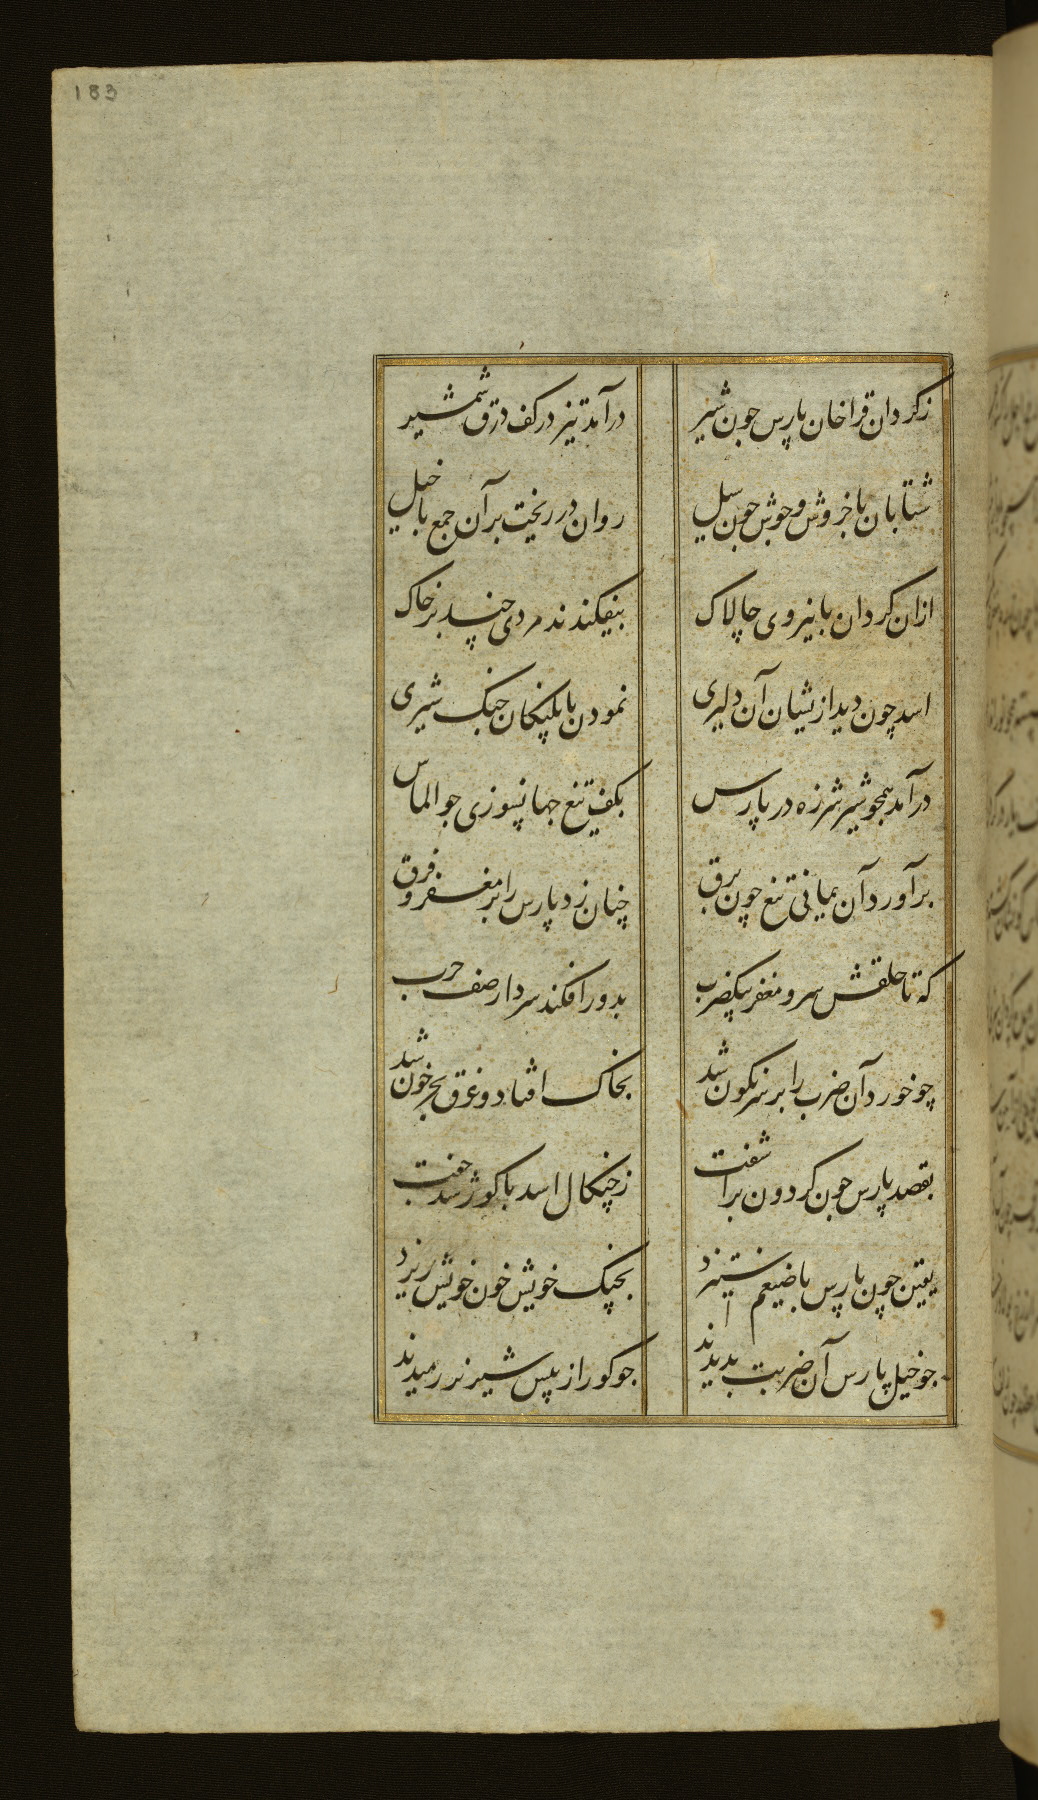 183
زکردان قراخان پارس جون شیر درآمد تیز در کف درق شمشیر
شتابان باخروش وجوش جون سیل روان در ریخت برآن جمع باخیل
ازان کردان بانیروی چالاک بیفکندند مردی چند بر خاک
اسد چون دید ازیشان آن دلیری نمودن با پلنکان جنک شیری
درآمد همجو شیر شرزه در پارس بکف تیغ جهانسوزی جو الماس
برآورد آن یمانی تیغ چون برق چنان زد پارس را بر مغفر و فرق
که تا حلقش سر و مغفر بیکضرب بدور افکند سردار صف حرب
چو خورد آن ضرب را بر سر نکون شد بخاک افتاد و غرق بحر خون شد
بقصد پارس جون کردون برآشفت زچنکال اسد با کور شد جفت
یقین چون پارس با ضیغم ستیزد بچنک خویش خون خویش ریزد
جو خیل پارس آن ضربت بدیدند جو کور از پیس شیر نر رمیدند